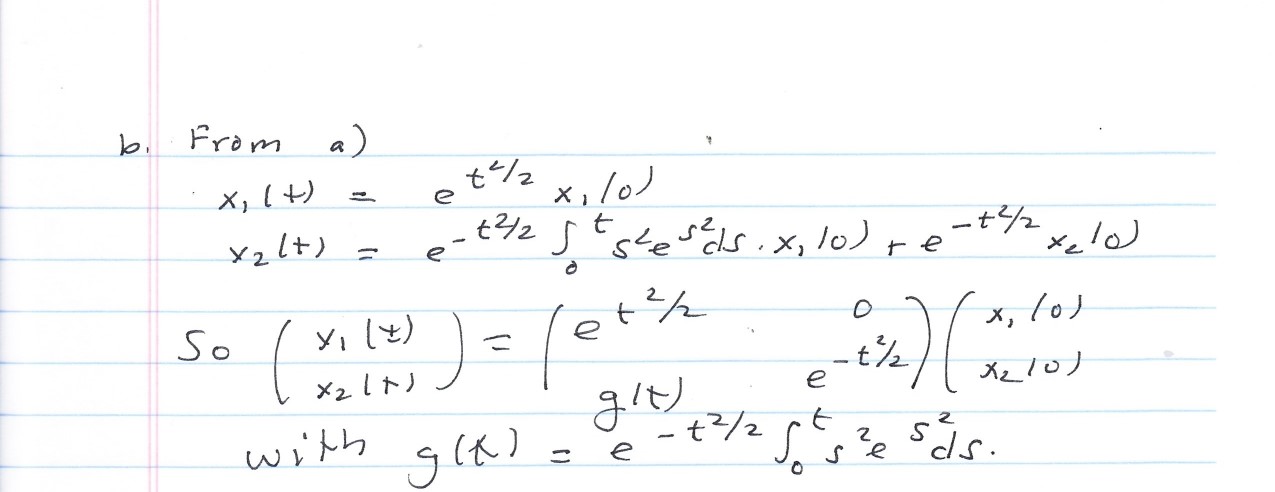 b. From a)
x₁(t) = e^{t²/2} x₁(0)
x₂(t) = e^{-t²/2} ∫₀^t s²e^{s²}ds · x₁(0) + e^{-t²/2} x₂(0)
So (x₁(t) x₂(t)) = (e^{t²/2} 0 g(t) e^{-t²/2}) (x₁(0) x₂(0))
with g(t) = e^{-t²/2} ∫₀^t s²e^{s²}ds.